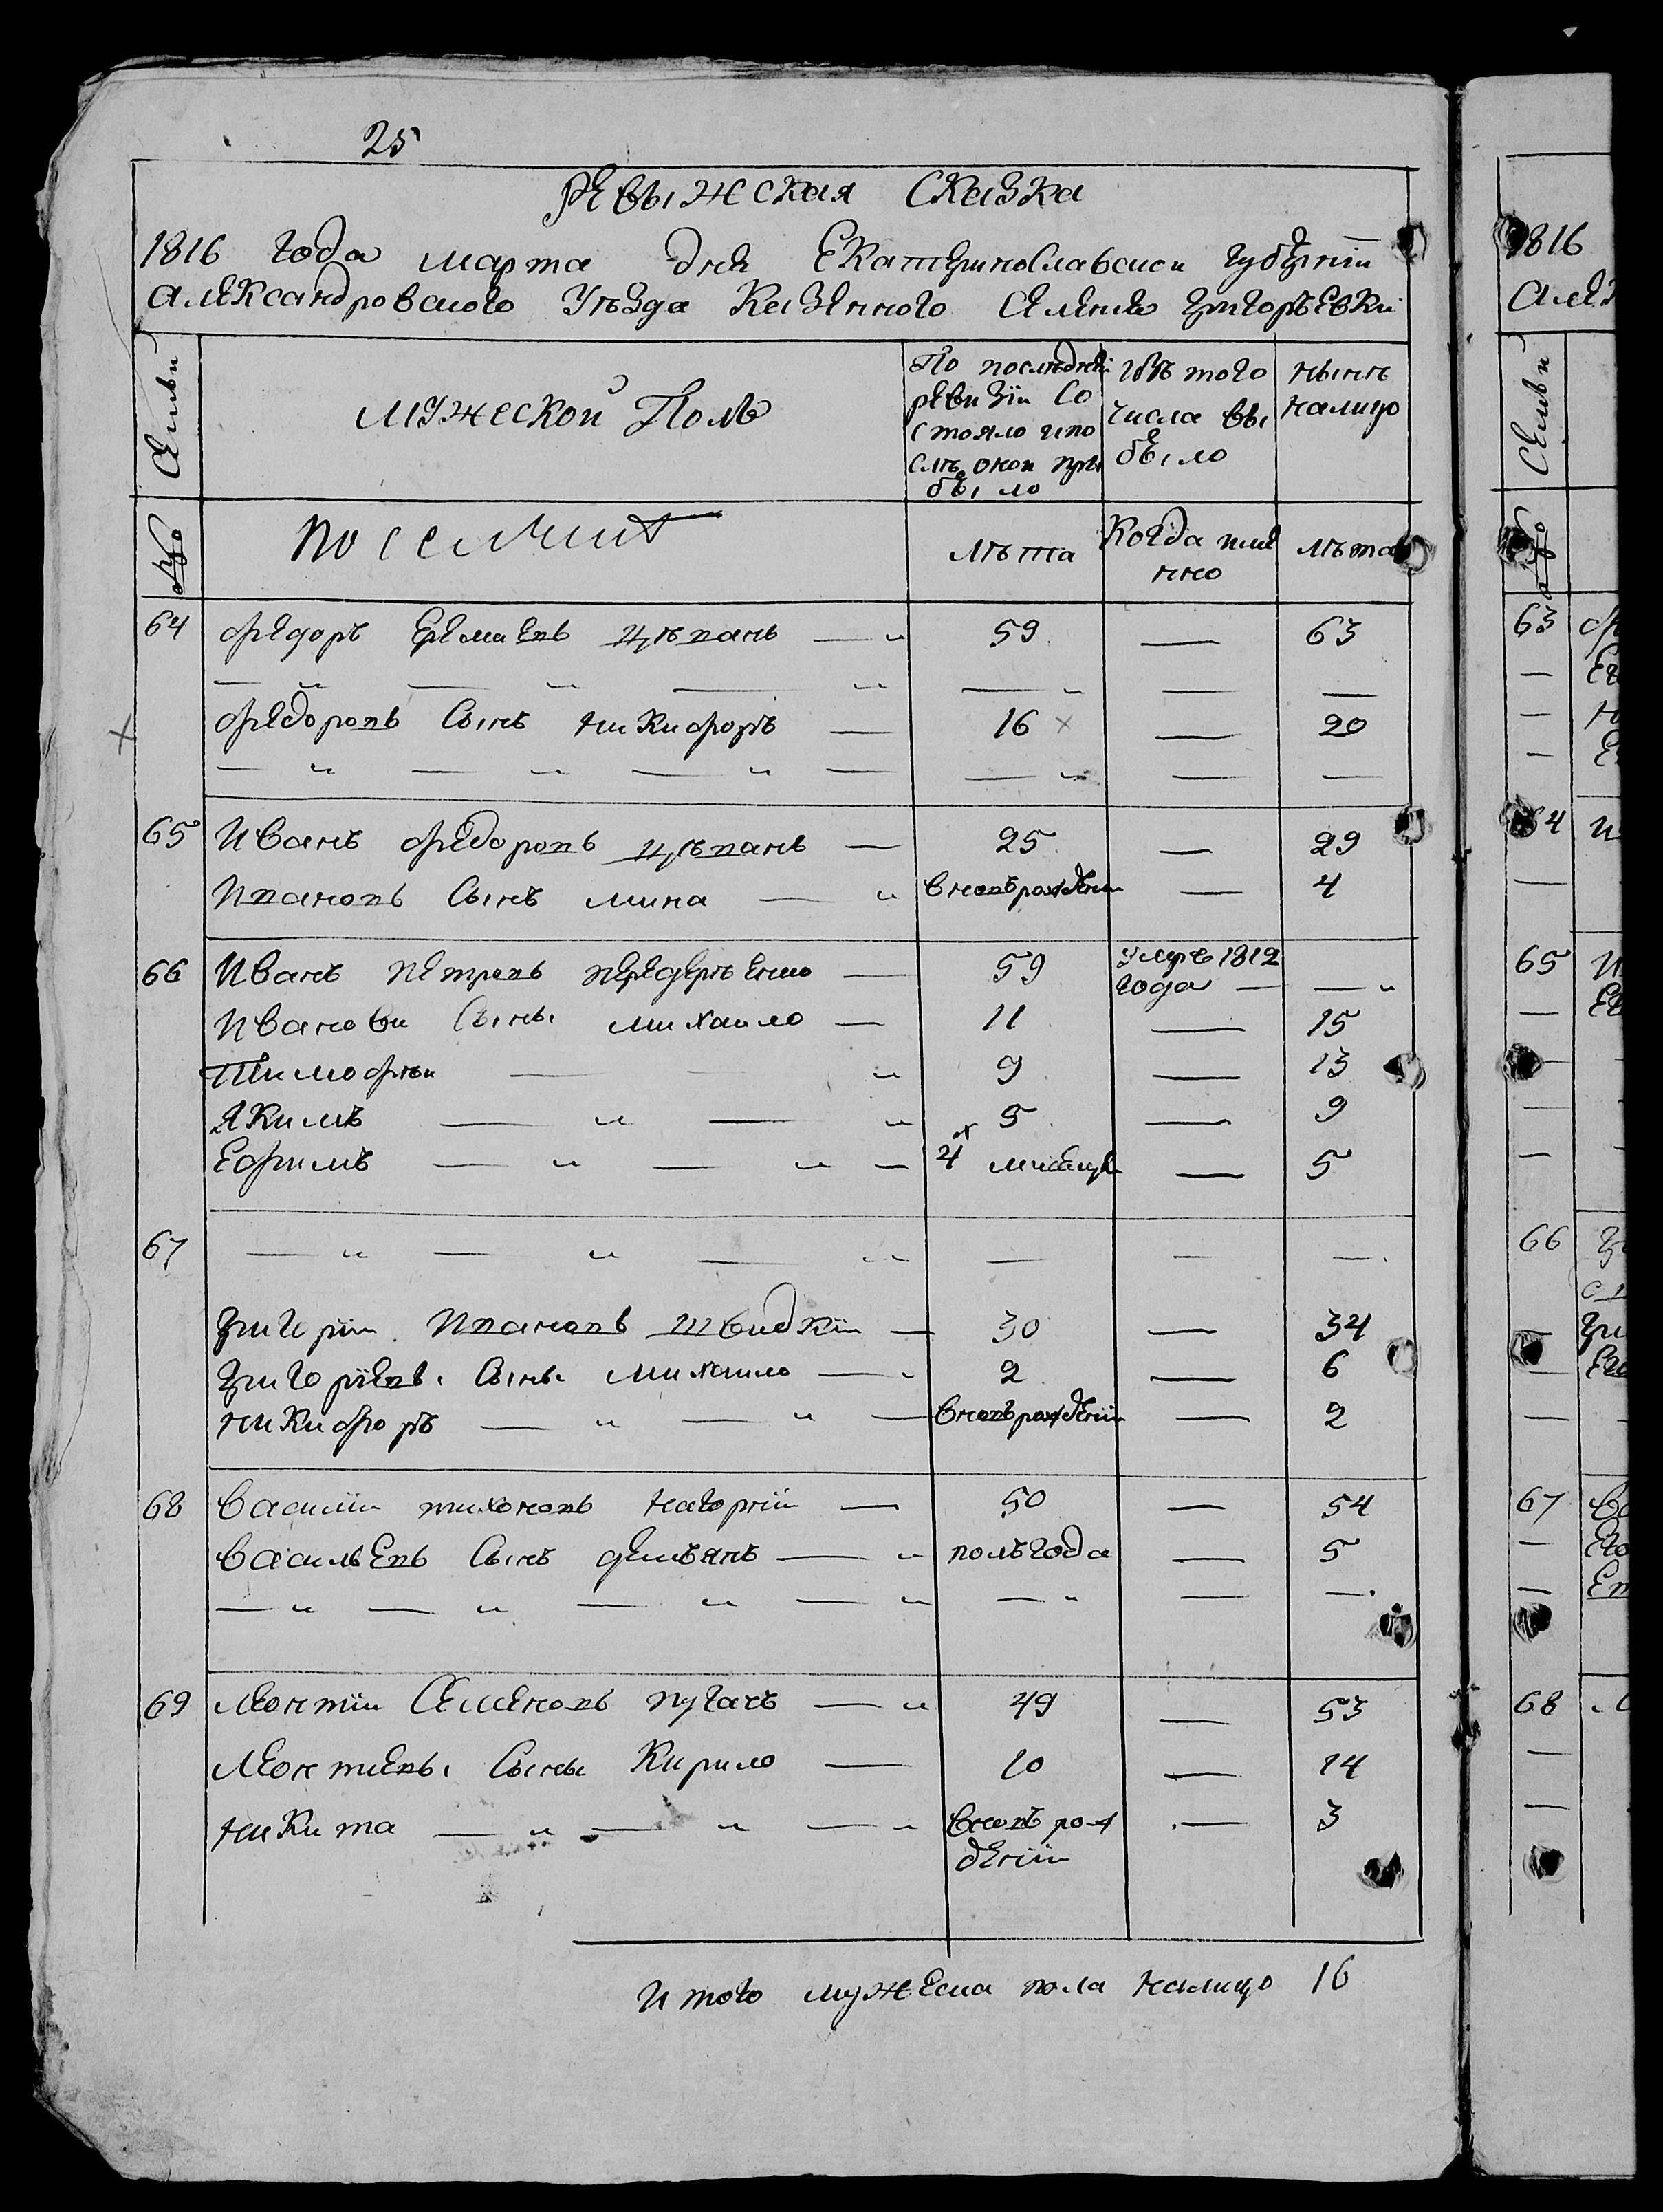 25
Ревыжская Сказка
1816 года марта дня Екатеринославской губернїи
Александровского Уѣзда Казенного Селенїя Григорьевки
Семьи
Мужеской Полъ
По последней ревизїи Со стояло и по слѣ оной при было
Изъ того числа вы было
Нынѣ налицо
№
лѣта
Когда име нно
лѣта
64 Федоръ Еремѣевъ Цѣпань — 59 — 63
Федоровъ Сынъ Никифоръ — 16 — 20
65 Иванъ Федоровъ Цѣпань — 25 — 29
Ивановъ Сынъ Мина — вновъ рожденъ — 4
66 Иванъ Петровъ Передерѣенко — 59 Умре 1812 года —
Иванови Сыны Михаило — 11 — 15
Тимофѣй — 9 — 13
Якимъ — 5 — 9
Ефимъ — 4 месяца — 5
67
Григорїи Ивановъ Швидкїи — 30 — 34
Григорїевы Сыны Михаило — 2 — 6
Никифоръ — вновъ рожденїи — 2
68 Василїи Тихоновъ Нагорнїи — 50 — 54
Васильевъ Сынъ Демьянъ — полъ года — 5
69 Леонтїи Семеновъ Пугачъ — 49 — 53
Леонтиевы Сыны Кирило — 10 — 14
Никита — вновъ рож денїи — 3
Итого мужеска пола налицо 16
1816
Алек
Семьи
№
63
64
65
66
67
68